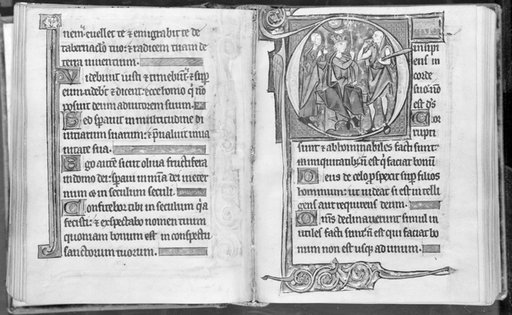 nem: euellet te & emigrabit te de
tabernaclo tuo: & radicem tuam de
terra uiuentium.
Videbunt iusti & timebunt: & sup
eum ridebt & dicent: ecce homo qi no
posuit deum adiutorem suum.
Sed sperauit in multitudine di
uitiarum suarum: & preualuit in ua
nitate sua.
Ego autem sicut oliua fructifera
in domo dei: speraui in mia dei in eter
num & in seculum seculi.
Confitebor tibi in seculum qa
fecisti: & exspectabo nomen tuum
quoniam bonum est in conspectu
sanctorum tuorum.
insipi
ens in
corde
suo: no
est ds
Cor
rupti
sunt & abhominabiles facti sunt:
in iniquitatib: n est qi faciat bonu
Deus de celo prospexit sup filios
hominum: ut uideat si est intelli
gens aut requirens deum.
Oms declinauerunt simul in
utiles facti sunt: n est qui faciat bo
num non est usq: ad unum.